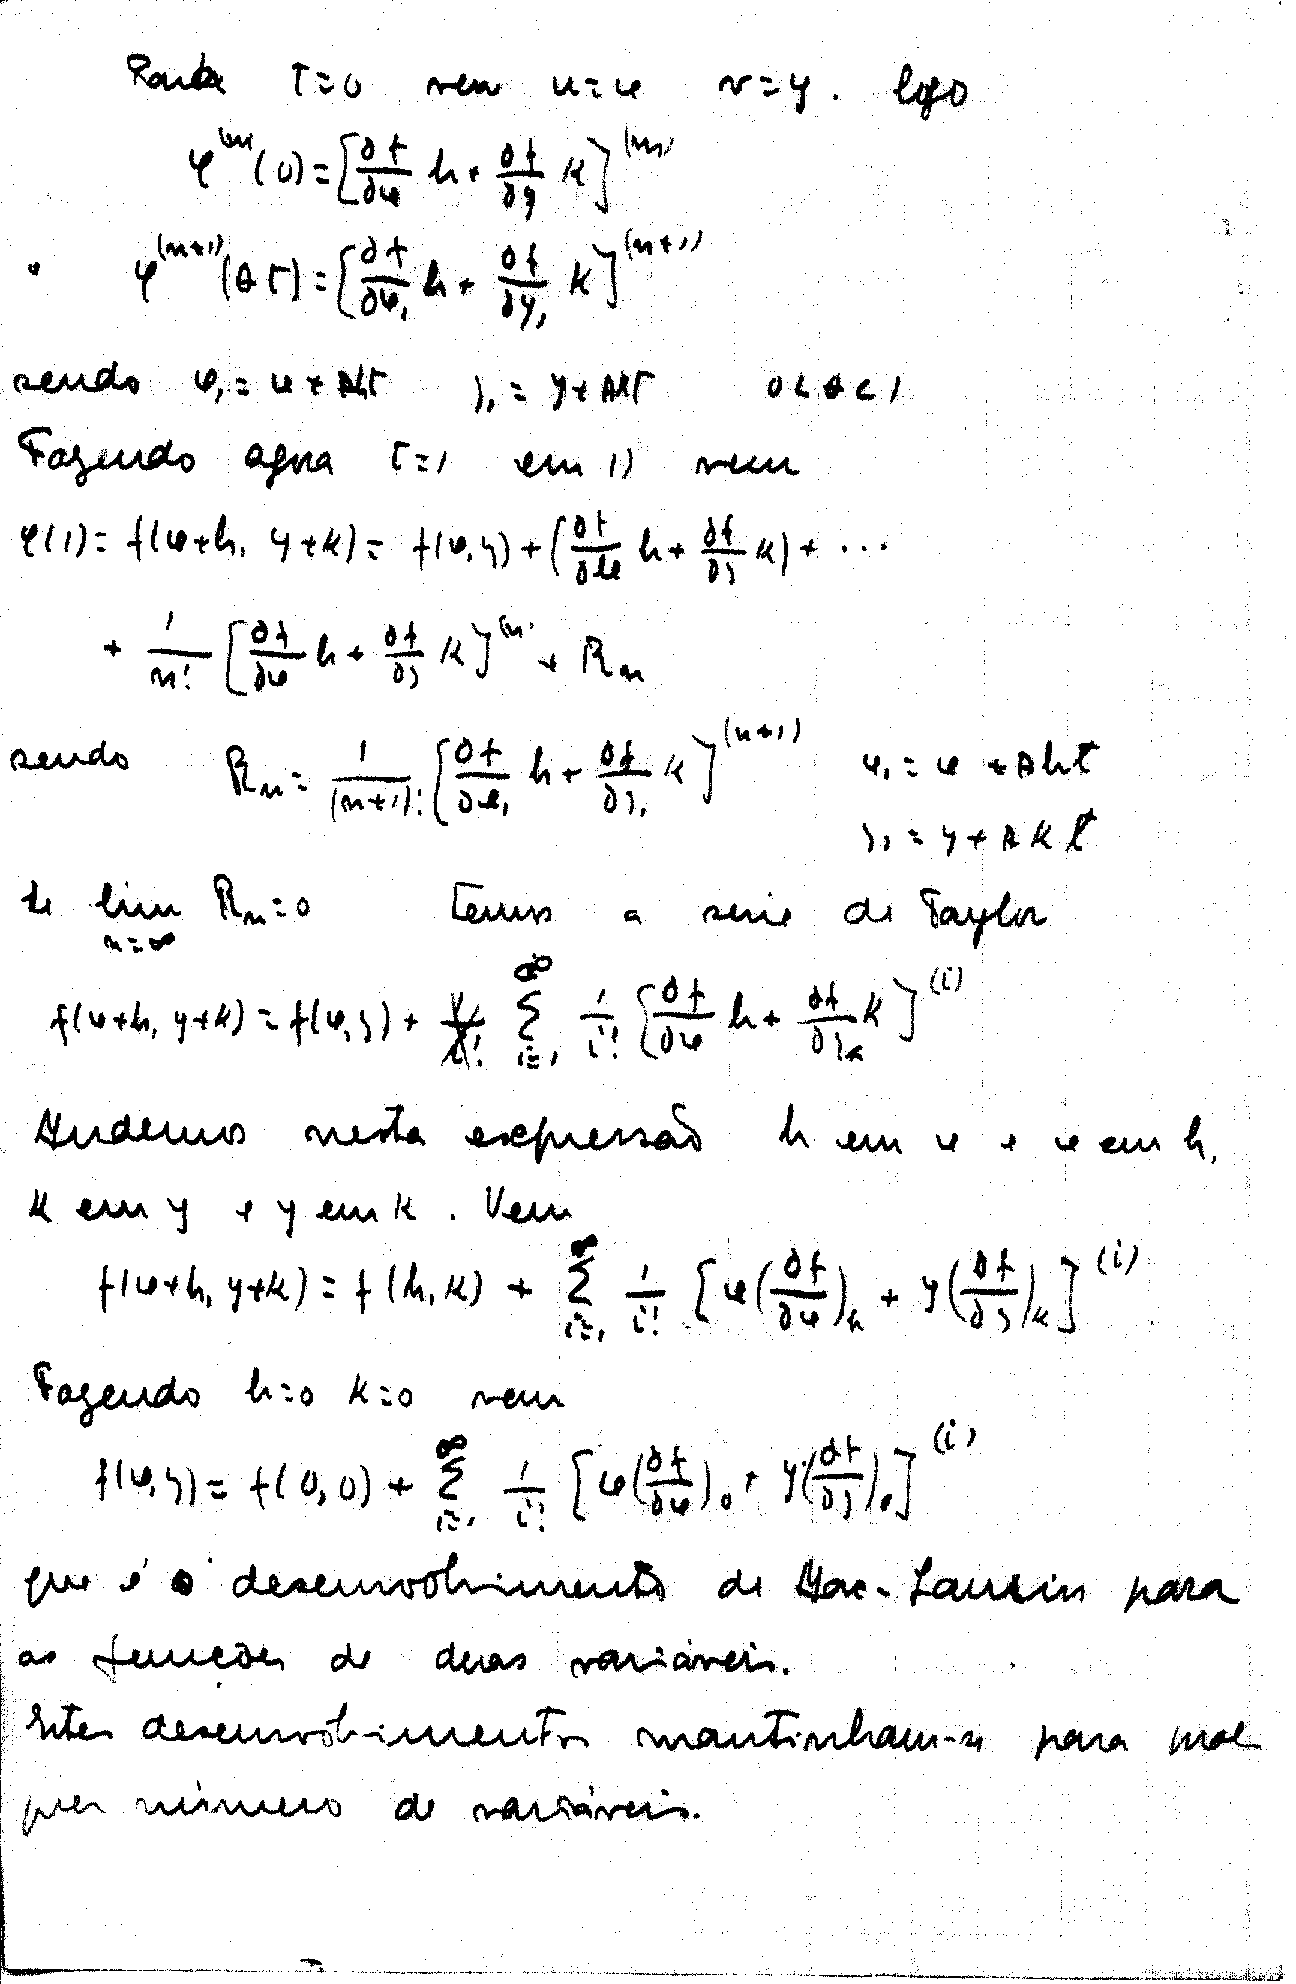 Para t=0 vem u=x v=y. logo
φ^(n)(0) = [∂f/∂x h + ∂f/∂y k]^(n)
φ^(n+1)(θt) = [∂f/∂x₁ h + ∂f/∂y₁ k]^(n+1)
sendo x₁ = x + θht y₁ = y + θkt 0<θ<1
Fazendo agora t=1 em 1) vem
φ(1) = f(x+h, y+k) = f(x,y) + (∂f/∂x h + ∂f/∂y k) + ...
+ 1/n! [∂f/∂x h + ∂f/∂y k]^(n) + Rn
sendo Rn = 1/(n+1)! [∂f/∂x₁ h + ∂f/∂y₁ k]^(n+1) x₁ = x + θht
y₁ = y + θkt
Se lim Rn=0 temos a serie de Taylor
n=∞
f(x+h, y+k) = f(x,y) + ∞Σi=1 1/i! [∂f/∂x h + ∂f/∂y k]^(i)
Mudemos nesta expressão h em x e x em h,
k em y e y em k. Vem
f(x+h, y+k) = f(h,k) + ∞Σi=1 1/i! [x(∂f/∂x)h + y(∂f/∂y)k]^(i)
Fazendo h=0 k=0 vem
f(x,y) = f(0,0) + ∞Σi=1 1/i! [x(∂f/∂x)₀ + y(∂f/∂y)₀]^(i)
que é o desenvolvimento de Mac-Laurin para
as funções de duas variáveis.
Estes desenvolvimentos mantinham-se para qual
quer número de variáveis.